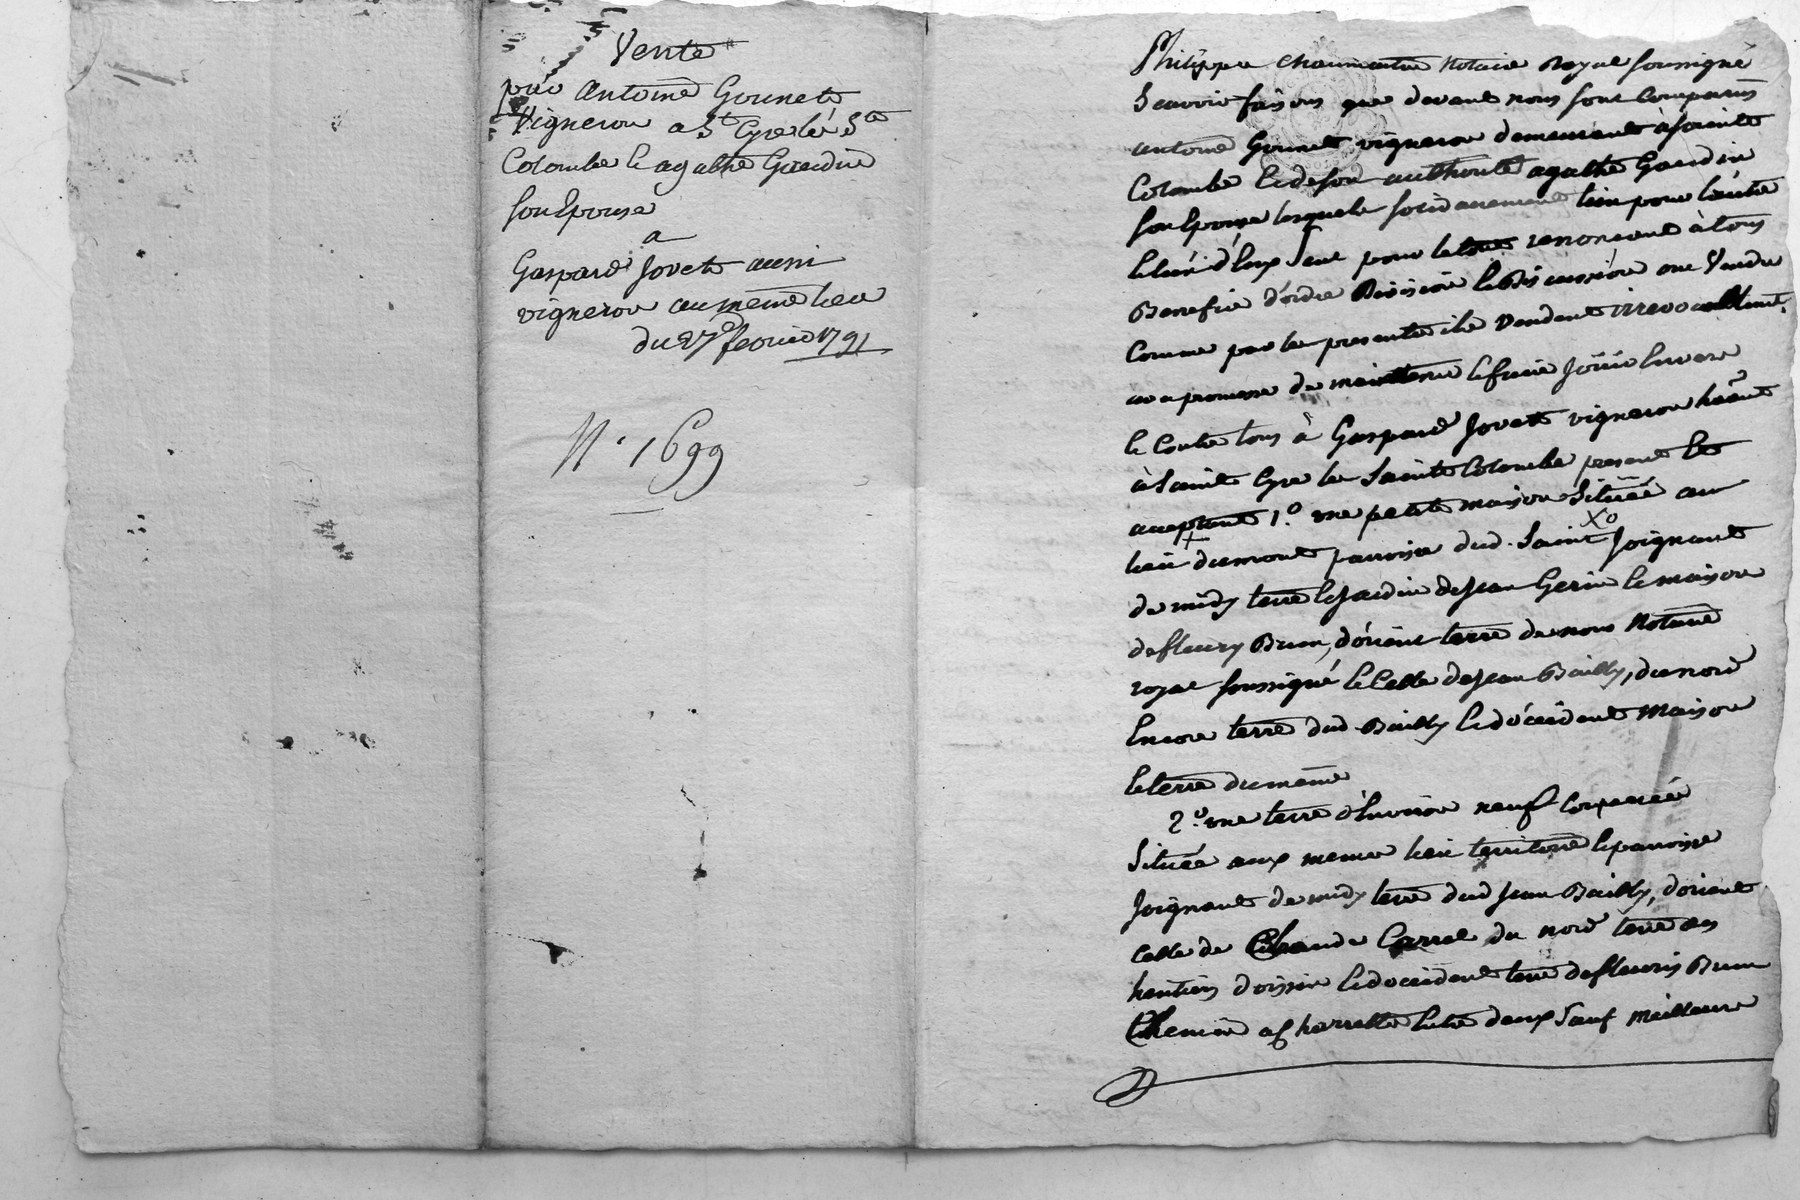 Vente
par antoine Gounet
Vigneron a St Cyr les Ste
Colombe & agathe Gaudin
son Epouse
a
Gaspard Jovet aussi
vigneron au même lieu
du 27 fevrier 1791
N.° 1699
Philippe chaumartin Notaire Royal soussigné
Scavoir faisons que devant nous sont comparus
antoine Gounet vigneron demeurant à sainte
Colombe & de son authorité agathe Gaudin
son Epouse lesquels solidairement l'un pour l'autre
& l'un d'Eux seul pour le tout renoncant à tous
Benefice d'ordre Division & Discussion ont Vendu
Comme par les presentes ils Vendent irrevocablement
avec promesse de maintenir & faire Jouir Envers
& Contre tous à Gaspard Jovet vigneron hâant
à Saint Cyr les Sainte Colombe present &
acceptant 1.° une petite maison Située au
lieu du mont parroisse dud. Saint Xo Joignant
de midy terre & Jardin de Jean Gerin & maison
de fleury Brun, d'orient terre de nous Notaire
royal soussigné & Celle de Jean Bailly, du nord
Encore terre dud Bailly & d'occident Maison
& terre du même
2.° une terre d'Environ neuf Couparées
Située aux memes lieu territoire & parroisse
Joignant de midy terre dud Jean Bailly, d'orient
celle de Claude Carrel du nord terre des
heritiers d'oissin & d'occident terre de fleuris Brun
Chemin à Charrette Entre deux Sauf meilleurs